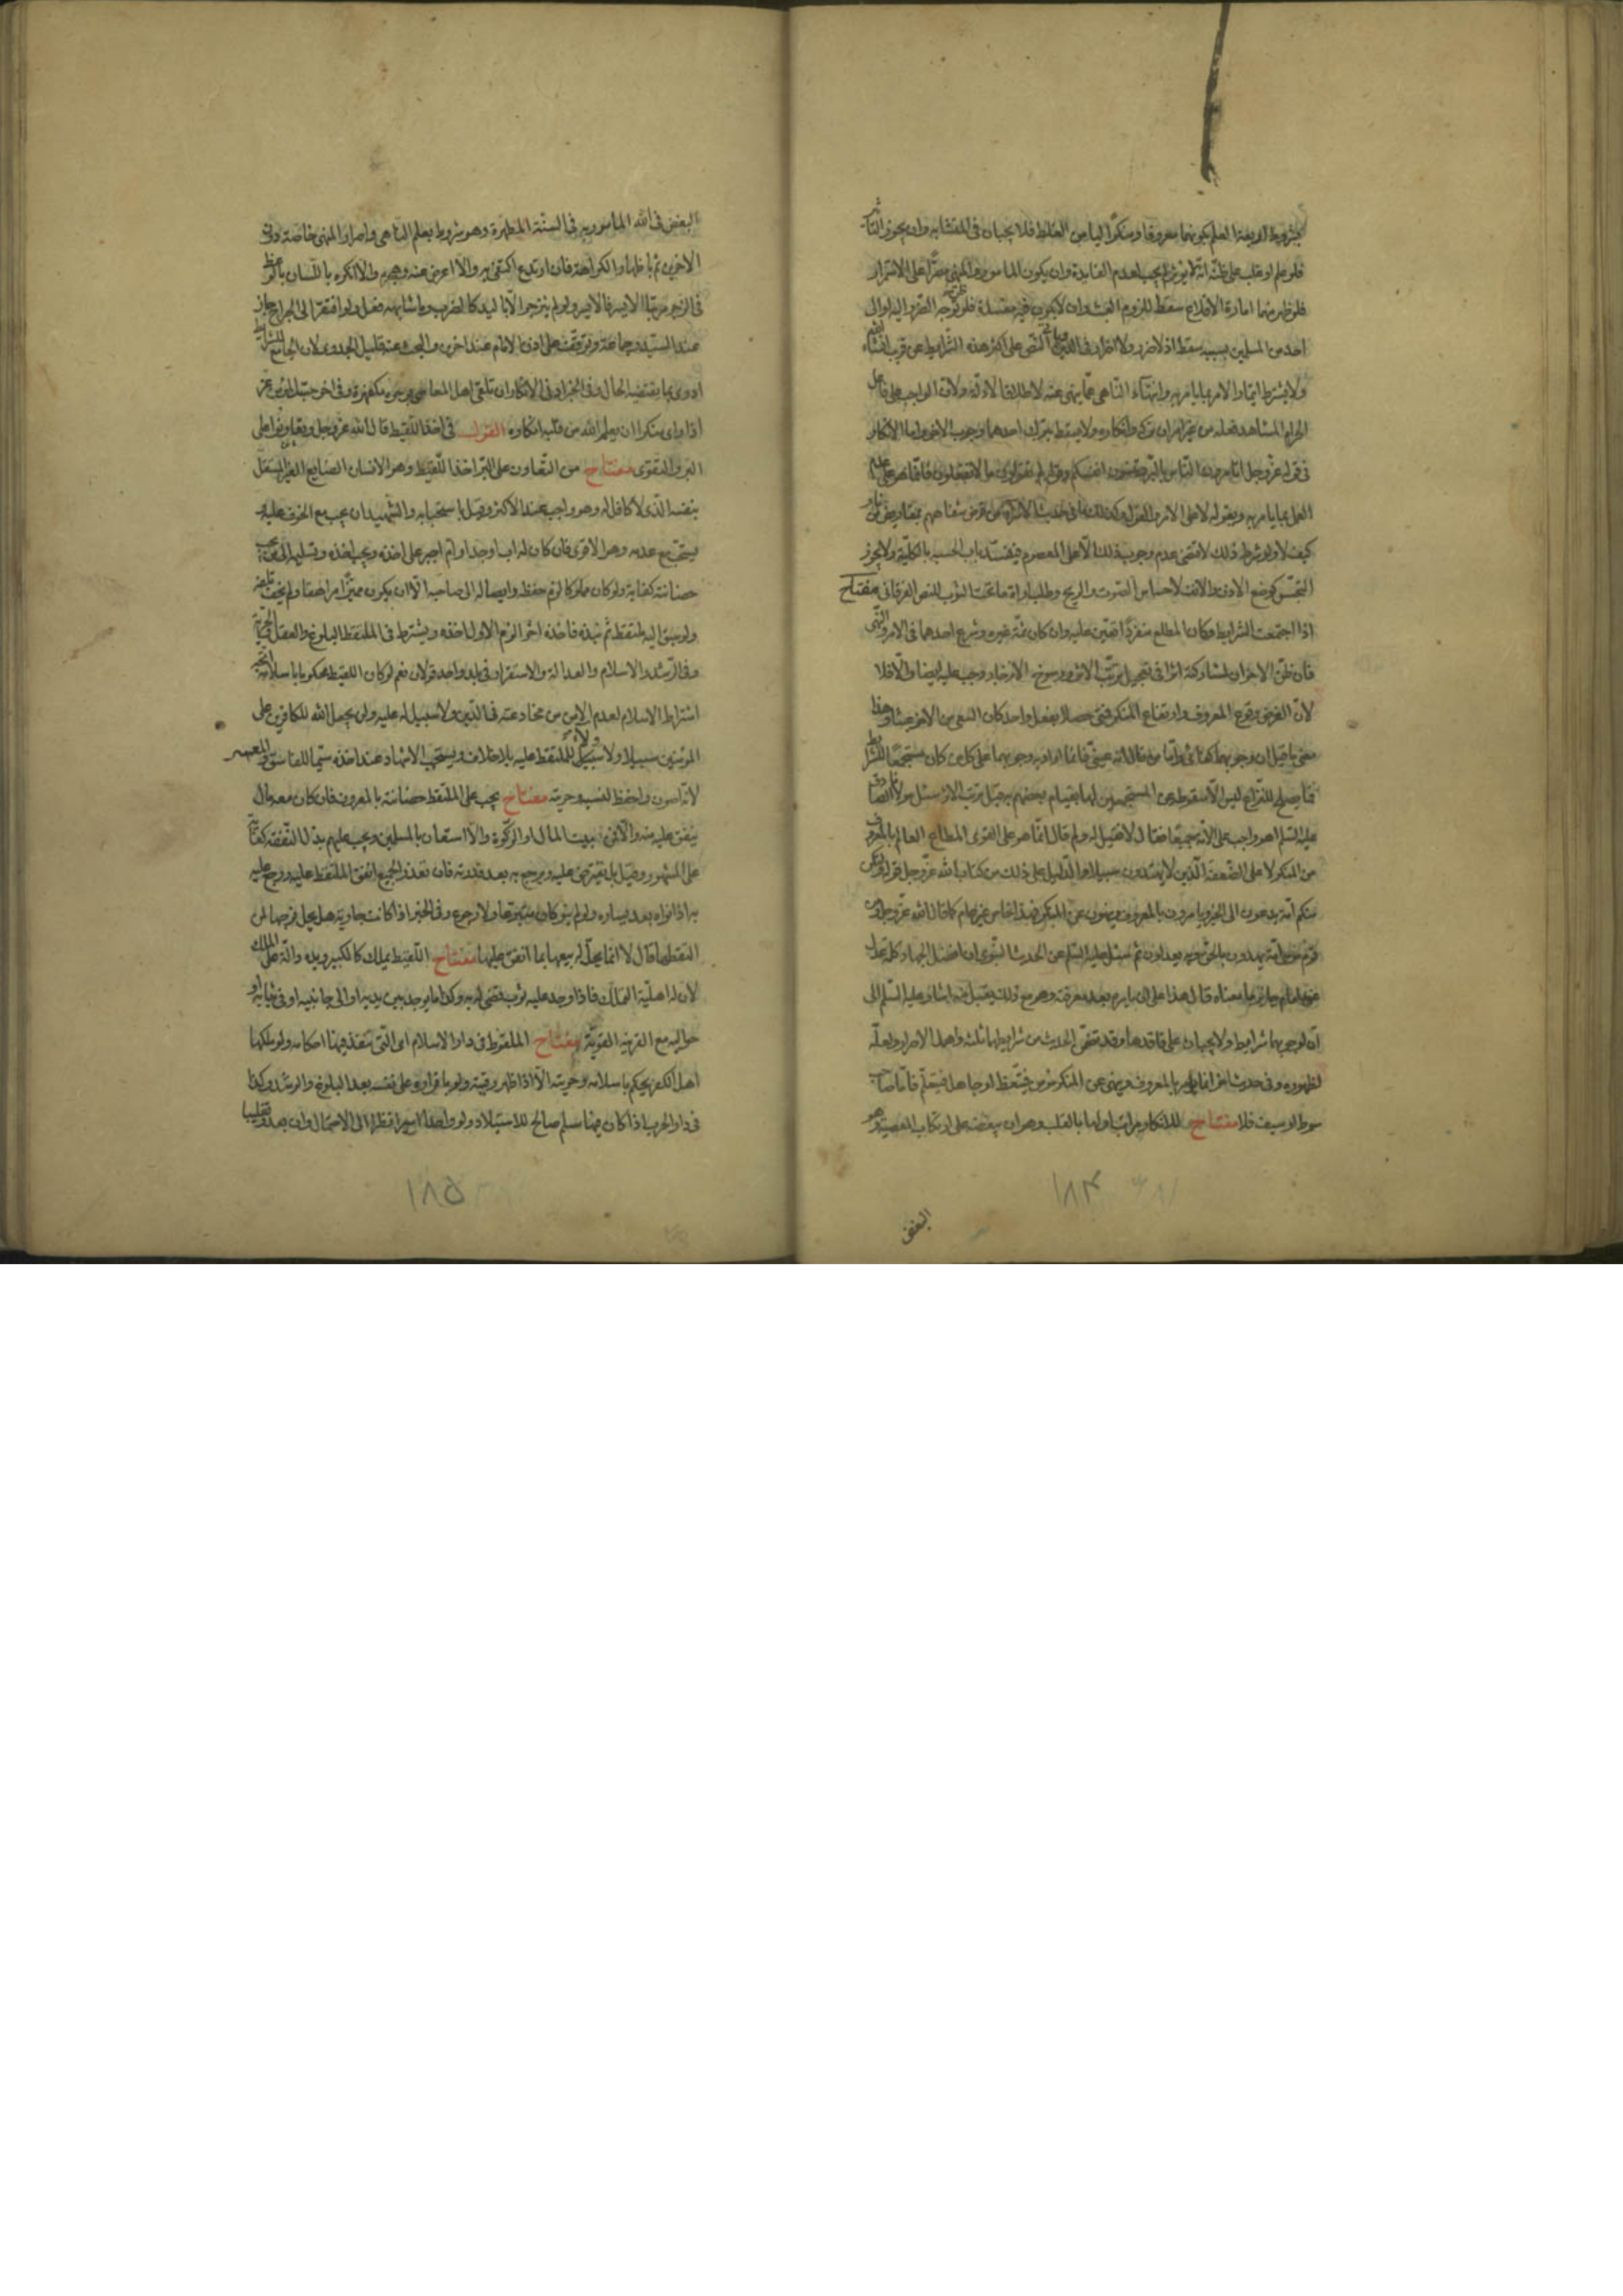 بشروط اربعة العلم بكونهما معروفا ومنكرا ليامن الغلط فلا يجبان فى المتشابه وان يجوز التاثير
فلو علم او غلب على ظنه انه لا يؤثر لم يجب لعدم الفايدة وان يكون المامور والمنهى مصرا على الاستمرار
فلو ظهر منهما امارة الاقلاع سقط للزوم العبث وان لا يكون فيه مفسدة فلو ظن توجه الضرر اليه او الى
احد من المسلمين بسببه سقط اذ لا ضرر ولا اضرار فى الدين النص على اكثر هذه الشرايط عن قريب انشاء الله
ولا يشترط ايتمار الامر بما يامر به وانتهاء الناهى عما ينهى عنه لاطلاق الادلة ولان الواجب على فاعل
الحرام المشاهد فعله من غيره امران تركه وانكاره ولا يسقط بترك احدهما وجوب الاخر واما الانكار
فى قوله عز وجل اتامرون الناس بالبر وتنسون انفسكم وقوله لم تقولون ما لا تفعلون فانما هو على عدم
العمل بما يامر به ويقوله لا على الامر والقول وكذلك ما فى حديث الاسراء من قرض شفاههم بمقاريض من نار
كيف لا ولو شرط ذلك لاقتضى عدم وجوب ذلك الا على المعصوم فينسد باب الحسبه بالكلية ولا يجوز
التجسس كوضع الاذن والانف لاحساس الصوت والريح وطلب اراءة ما تحت الثوب للنص القرانى مفتاح
اذا اجتمعت الشرايط وكان المطلع منفردا تعين عليه وان كان ثمة غيره وشرع احدهما فى الامر والنهى
فان ظن الاخر ان لمشاركته اثرا فى تعجيل ترتب الاثر ورسوخ الانزجار وجب عليه ايضا والا فلا
لان الغرض وقوع المعروف وارتفاع المنكر فمتى حصلا بفعل واحد كان السعى من الاخر عبثا وهذا
معنى ما قيل ان وجوبهما كفائى واما من قال انه عينى فانما اراد به وجوبهما على كل من كان مستجمعا للشرايط
فما يصلح للنزاع ليس الا سقوطه عن المستجمعين لها بقيام بعضهم به قبل ترتب الاثر سئل مولانا الصادق
عليه السلم اهو واجب على الامة جميعا فقال لا فقيل له ولم قال انما هو على القوى المطاع العالم بالمعروف
من المنكر لا على الضعفة الذين لا يهتدون سبيلا والدليل على ذلك من كتاب الله عز وجل قوله ولتكن
منكم امة يدعون الى الخير ويامرون بالمعروف وينهون عن المنكر فهذا خاص غير عام كما قال الله عز وجل ومن
قوم موسى امة يهدون بالحق وبه يعدلون ثم سئل عليه السلم عن الحديث النبوى ان افضل الجهاد كلمة عدل
عند امام جاير ما معناه قال هذا على ان يامره بعد معرفته وهو مع ذلك يقبل منه اشار عليه السلم الى
ان لوجوبهما شرايط ولا يجبان على فاقدها وقد تضمن الحديث من شرايطها ثلثة واهمل الاصرار ولعله
لظهوره وفى حديث اخر انما يؤمر بالمعروف وينهى عن المنكر مؤمن فيتعظ او جاهل فيتعلم فاما صاحب
سوط او سيف فلا مفتاح للانكار مراتب اولها بالقلب وهو ان يبغضه على ارتكاب المعصية وهو
البغض
١٨٤
البغض فى الله المامور به فى السنة المطهرة وهو مشروط بعلم الناهى واصرار المنهى خاصة دون
الاخرين ثم باظهار الكراهة فان ارتدع اكتفى به والا اعرض عنه وهجره والا انكره باللسان بالوعظ
فى الزجر مرتبا الايسر فالايسر ولو لم ينزجر الا باليد كالضرب وما شابهه فعل ولو افتقر الى الجراح جاز
عند السيد وجماعة وتوقف على اذن الامام عند اخرين والبحث عنه قليل الجدوى لان الجامع للشرايط
ادرى بما يقتضيه الحال وفى الخبر ادنى الانكار ان تلقى اهل المعاصى بوجوه مكفهرة وفى اخر حسب المؤمن عزا
اذا راى منكرا ان يعلم الله من قلبه انكاره القول فى اخذ اللقيط قال الله عز وجل وتعاونوا على
البر والتقوى مفتاح من التعاون على البر اخذ اللقيط وهو الانسان الضايع الغير المستقل
بنفسه الذى لا كافل له وهو واجب عند الاكثر وقيل باستحبابه والشهيد ان يجب مع الخوف عليه و
يستحب مع عدمه وهو الاقوى فان كان له اب او جد او ام اجبر على اخذه ويجب اخذه وتسليمه الى من يجب
حضانته كفاية ولو كان مملوكا لزم حفظه وايصاله الى صاحبه الا ان يكون مميزا مراهقا ولم يخف تلفه
ولو سبق اليه ملتقط ثم نبذه فاخذه اخر الزم الاول اخذه ويشترط فى الملتقط البلوغ والعقل والحرية
وفى الرشد والاسلام والعدالة والاستقرار فى بلد واحد قولان نعم لو كان اللقيط محكوما باسلامه اتجه
اشتراط الاسلام لعدم الامن من مخادعته فى الدين ولا سبيل له عليه ولن يجعل الله للكافرين على
المؤمنين سبيلا ولا ولاء للملتقط عليه بلا خلاف ويستحب الاشهاد عند اخذه سيما للفاسق والمعسر
لانه اصون واحفظ لنسبه وحريته مفتاح يجب على الملتقط حضانته بالمعروف فان كان معه مال
ينفق عليه منه والا فمن بيت المال او الزكوة والا استعان بالمسلمين ويجب عليهم بذل النفقة كفاية
على المشهور وقيل بل يقترض عليه ويرجع به بعد قدرته فان تعذر الجميع انفق الملتقط عليه ورجع عليه
به اذا نواه بعد يساره ولو لم ينو كان متبرعا ولا رجوع وفى الخبر اذا كانت جارية هل يحل فرجها لمن
التقطها قال لا انما يحل له بيعها بما انفق عليها مفتاح اللقيط يملك كالكبير ويده دالة على الملك
لان له اهلية التملك فاذا وجد عليه ثوب قضى له به وكذا ما يوجد بين يديه او الى جانبيه او فى ثيابه او
حواليه مع القرينة القوية مفتاح الملقوط فى دار الاسلام اى التى تنفذ فيها احكامه ولو ملكها
اهل الكفر يحكم باسلامه وحريته الا اذا ظهر رقيته ولو باقراره على نفسه بعد البلوغ والرشد وكذا
فى دار الحرب اذا كان فيها مسلم صالح للاستيلاد ولو واحدا اسيرا نظرا الى الاحتمال وان بعد وتغليبا
١٨٥